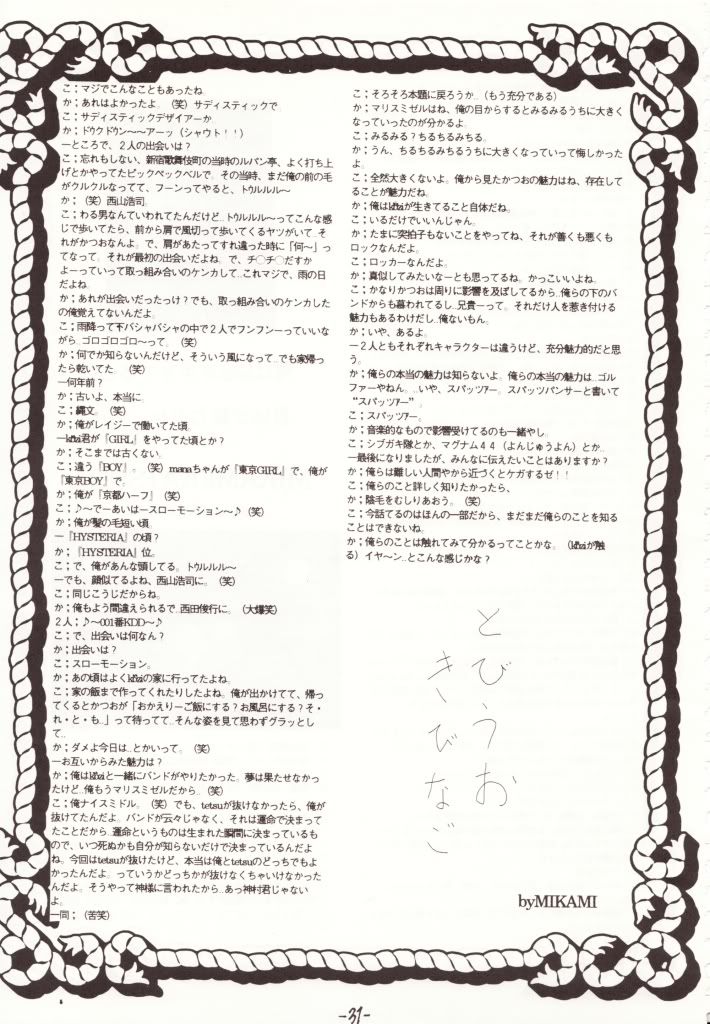 こ；マジでこんなこともあったね
か；あれはよかったよ。（笑）サディスティックで
こ；サディスティックデザイアーか
か；ドゥクドゥン〜〜アーッ（シャウト！！）
―ところで、２人の出会いは？
こ；忘れもしない、新宿歌舞伎町の当時のルパン亭、よく打ち上
げとかやってたビックペックベルで。その当時、まだ俺の前の毛
がクルクルなってて、フーンってやると、トゥルルル〜
か；（笑）西山浩司。
こ；わる男なんていわれてたんだけど‥トゥルルル〜ってこんな感
じで歩いてたら、前から肩で風切って歩いてくるヤツがいて‥そ
れがかつおなんよ。で、肩があたってすれ違った時に「何〜」っ
てなって。それが最初の出会いだよね。で、チ〇チ〇だすか
よーっていって取っ組み合いのケンカして‥これマジで、雨の日
だよね。
か；あれが出会いだったっけ？でも、取っ組み合いのケンカした
の俺覚えてないんだよ。
こ；雨降って下バシャバシャの中で２人でフンフンーっていいな
がら‥ゴロゴロゴロ〜って。（笑）
か；何でか知らないんだけど、そういう風になって‥でも家帰っ
たら乾いてた。（笑）
―何年前？
か；古いよ、本当に。
こ；縄文。（笑）
か；俺がレイジーで働いてた頃。
―köziｌ君が『GIRL』をやってた頃とか？
か；そこまでは古くない。
こ；違う『BOY』。（笑）manaちゃんが『東京GIRL』で、俺が
『東京BOY』で。
か；俺が『京都ハーフ』（笑）
こ；♪〜で一あいは一スローモーション〜♪（笑）
か；俺が髪の毛短い頃。
―『HYSTERIA』の頃？
か；『HYSTERIA』位。
こ；で、俺があんな頭してる。トゥルルル〜
―でも、顔似てるよね、西山浩司に。（笑）
こ；同じこうじだからね。
か；俺もよう間違えられるで‥西田俊行に。（大爆笑）
２人；♪〜001番KDD〜♪
こ；で、出会いは何なん？
か；出会いは？
こ；スローモーション。
か；あの頃はよくköziの家に行ってたよね。
こ；家の飯まで作ってくれたりしたよね。俺が出かけてて、帰っ
てくるとかつおが「おかえりーご飯にする？お風呂にする？そ・
れ・と・も‥」って待ってて‥そんな姿を見て思わずグラッとし
て‥
か；ダメよ今日は‥とかいって。（笑）
―お互いからみた魅力は？
か；俺はköziと一緒にバンドがやりたかった。夢は果たせなかっ
たけど‥俺もうマリスミゼルだから。（笑）
こ；俺ナイスミドル。（笑）でも、tetsuが抜けなかったら、俺が
抜けてたんだよ。バンドが云々じゃなく、それは運命で決まって
たことだから‥運命というものは生まれた瞬間に決まっているも
ので、いつ死ぬかも自分が知らないだけで決まっているんだよ
ね。今回はtetsuが抜けたけど、本当は俺とtetsuのどっちでもよ
かったんだよ。っていうかどっちかが抜けなくちゃいけなかった
んだよ。そうやって神様に言われたから‥あっ神村君じゃない
よ。
一同；（苦笑）
こ；そろそろ本題に戻ろうか‥（もう充分である）
か；マリスミゼルはね、俺の目からするとみるみるうちに大きく
なっていったのが分かるよ。
こ；みるみる？ちるちるみちる。
か；うん、ちるちるみちるうちに大きくなっていって悔しかった
よ。
こ；全然大きくないよ。俺から見たかつおの魅力はね、存在して
ることが魅力だね。
か；俺はköziが生きてること自体だね。
こ；いるだけでいいんじゃん。
か；たまに突拍子もないことをやってね、それが善くも悪くも
ロックなんだよ。
こ；ロッカーなんだよ。
か；真似してみたいなーとも思ってるね。かっこいいよね。
こ；かなりかつおは周りに影響を及ぼしてるから‥俺らの下のバ
ンドからも慕われてるし‥兄貴ーって。それだけ人を惹き付ける
魅力もあるわけだし‥俺ないもん。
か；いや、あるよ。
―２人ともそれぞれキャラクターは違うけど、充分魅力的だと思
う。
か；俺らの本当の魅力は知らないよ。俺らの本当の魅力は‥ゴル
ファーやねん。‥いや、スパッツァー。スパッツパンサーと書いて
“スパッツァー”。
こ；スパッツァー。
か；音楽的なもので影響受けてるのも一緒やし。
こ；シブガキ隊とか、マグナム４４（よんじゅうよん）とか‥
―最後になりましたが、みんなに伝えたいことはありますか？
か；俺らは難しい人間やから近づくとケガするぜ！！
こ；俺らのこと詳しく知りたかったら、
か；陰毛をむしりあおう。（笑）
こ；今話てるのはほんの一部だから、まだまだ俺らのことを知る
ことはできないね。
か；俺らのことは触れてみて分かるってことかな。（köziが触
る）イヤ〜ン‥とこんな感じかな？
とびうお
きびなご
byMIKAMI
-31-